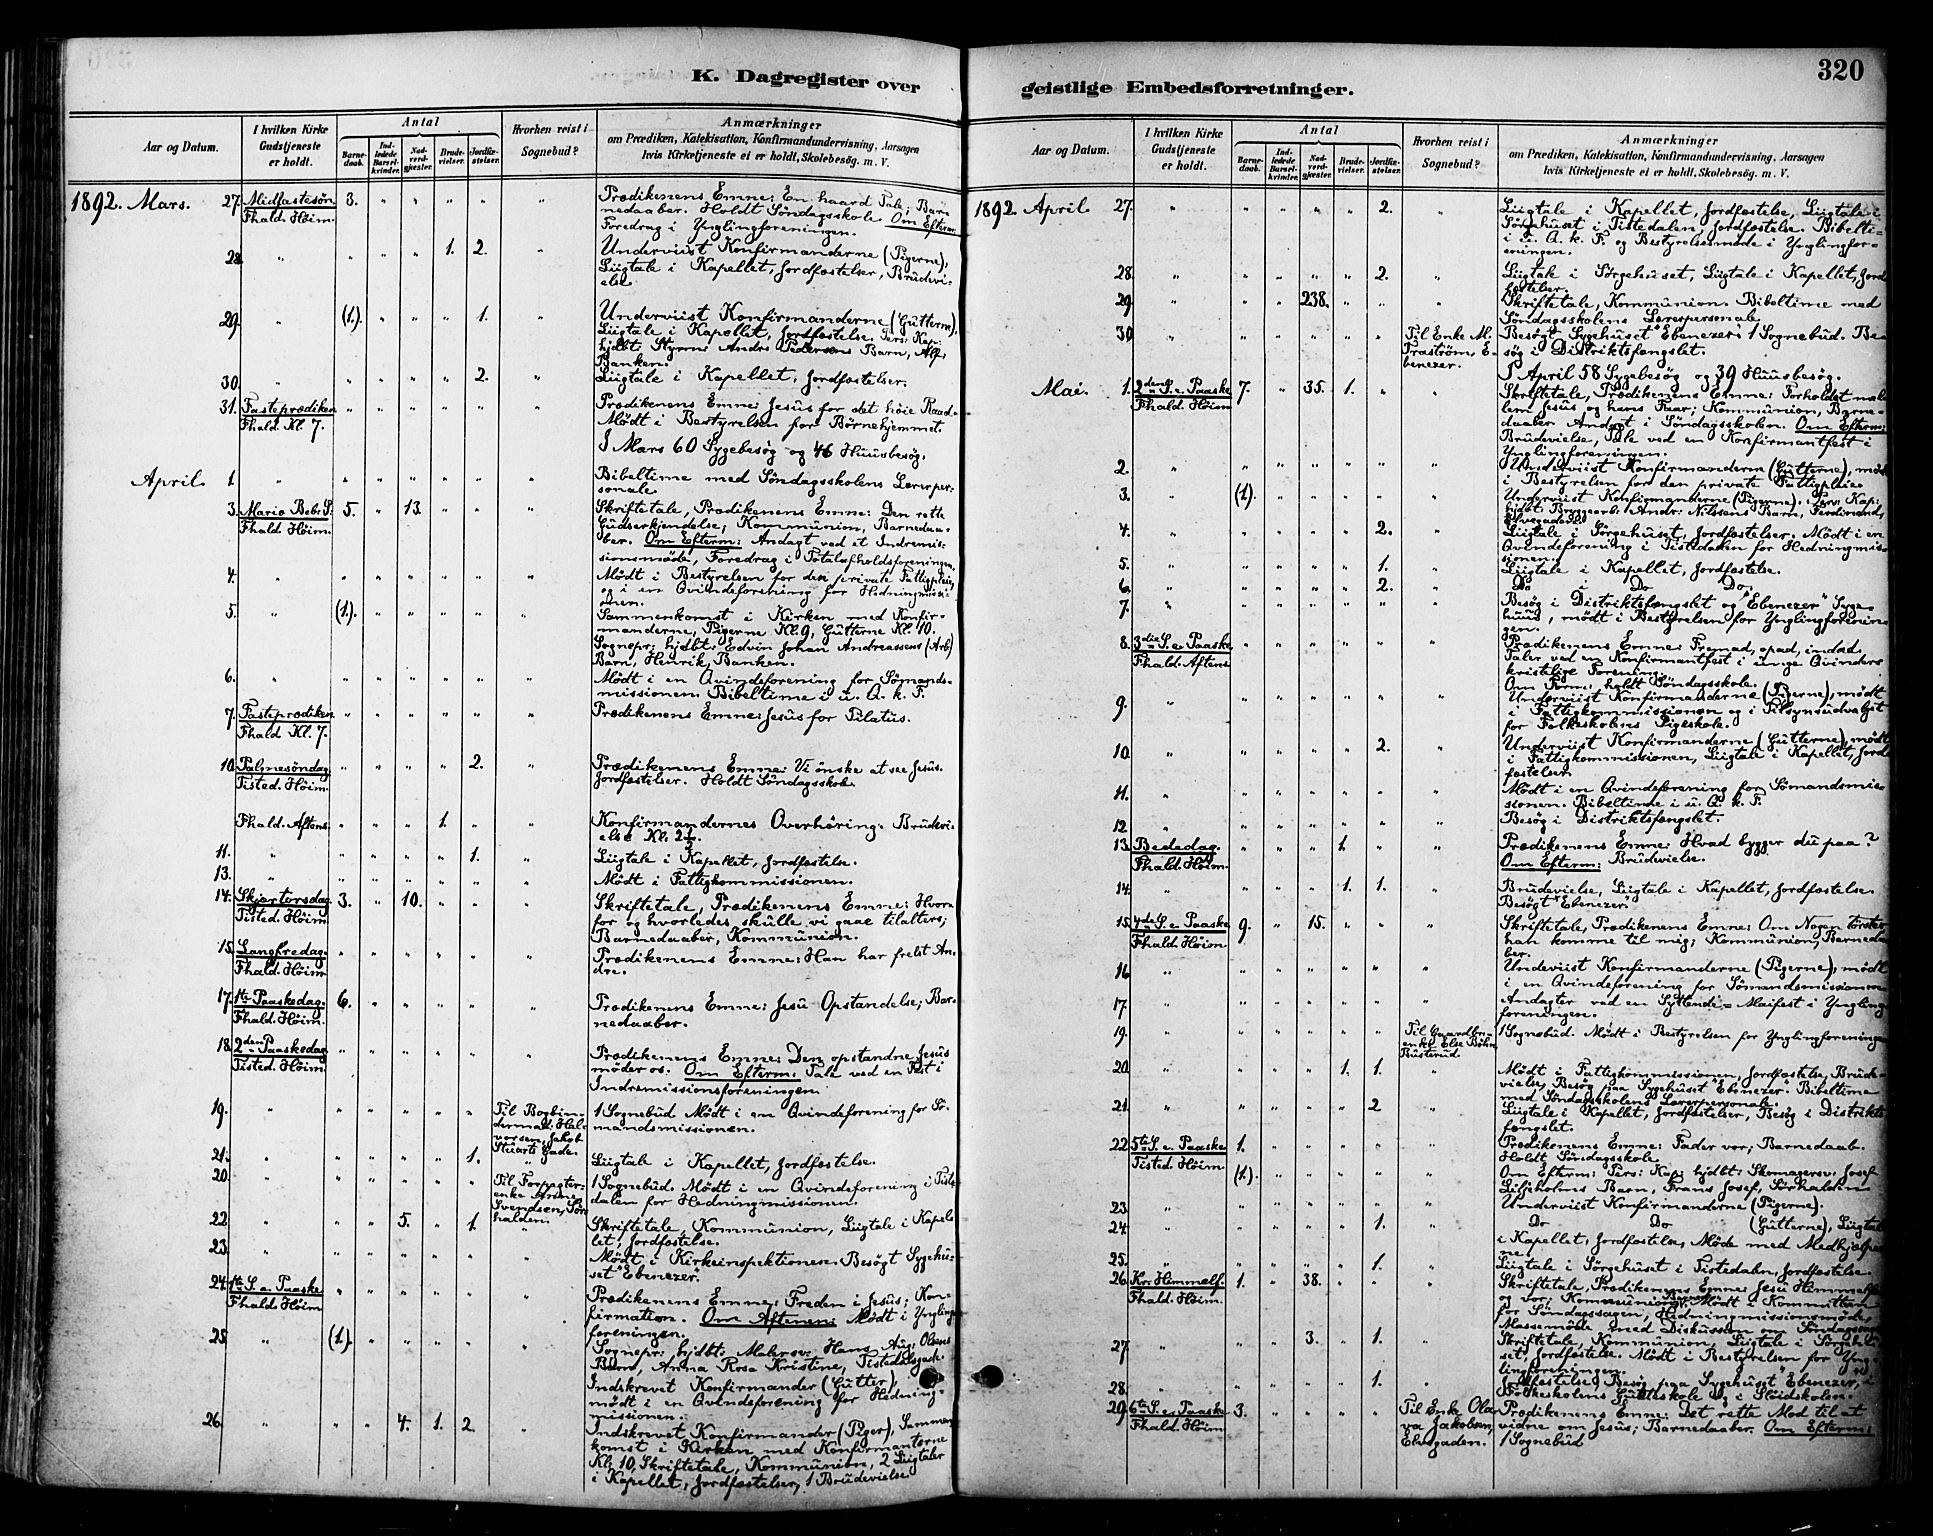 K. Dagregister over
Aar og Datum.
I hvilken Kirke Gudstjeneste er holdt.
Antal
Barnedaab.
Indledede Barselkvinder.
Nadverdgjester.
Brudevielser.
Jordfæstelser.
Hvorhen reist i Sognebud?
Anmærkninger
om Prædiken, Katekisation, Konfirmandundervisning, Aarsagen
hvis Kirketjeneste ei er holdt, Skolebesøg. m. V.
1892. Mars. 27. Midfastesøn. 3. " " " " " Prædikenens Emne: En haard Tale; Bar-
Fhald. Høim. nedaaber. Holdt Søndagsskole. Om Efterm:
Foredrag i Ynglingforeningen.
28. " " " " 1. 2. " Underviist Konfirmanderne (Pigerne),
Liigtale i Kapellet, Jordfæstelser, Brudevi-
else
29. " (1.). " " " 1. " Underviist Konfirmanderne (Gutterne),
Liigtale i Kapellet, Jordfæstelse. Pers: Kap:
hjdbt: Styrm: Andrs Pedersens Barn, Alf,
Banken.
30. " " " " " 2. " Liigtale i Kapellet, Jordfæstelser.
31. Fasteprædiken " " " " " " Prædikenens Emne: Jesus for det høie Raad.
Fhald. Kl. 7. Mødt i Bestyrelsen for Børnehjemmet.
I Mars 60 Sygebesøg og 46 Huusbesøg.
April. 1. " " " " " " " Bibeltime med Søndagsskolens Lærerper-
sonale
3. Mariæ Beb: S: 5. " 13. " " " Skriftetale, Prædikenens Emne: Den rette
Fhald. Høim. Gudserkjendelse; Kommunion, Barnedaa-
ber. Om Efterm: Andagt ved et Indremis-
sionsmøde, Foredrag i Totalafholdsforeningen.
4. " " " " " " " Mødt i Bestyrelsen for den private Fattigpleie,
og i en Qvindeforening for Hedningmissi-
onen.
5. " (1.). " " " " " Sammenkomst i Kirken med Konfir-
manderne, Pigerne Kl. 9, Gutterne Kl. 10.
Sognepr: hjdbt: Edvin Johan Andreassens (Arb)
Barn, Henrik, Banken.
6. " " " " " " " Mødt i en Qvindeforening for Sømands-
missionen. Bibeltime i u. Q. k. F.
7. Fasteprædiken " " " " " " Prædikenens Emne: Jesus for Pilatus.
Fhald Kl. 7.
10. Palmesøndag " " " " 2. " Prædikenens Emne: Vi ønske at see Jesus.
Tisted. Høim. Jordfæstelser. Holdt Søndagsskole.
Fhald. Aftens. " " " 1. " " Konfirmandernes Overhøring. Brudevi-
else Kl. 2½.
11. " " " " " 1. " Liigtale i Kapellet, Jordfæstelse.
13. " " " " " " " Mødt i Fattigkommissionen.
14. Skjærtorsdag 3. " 10. " " " Skriftetale, Prædikenens Emne: Hvor-
Tisted. Høim for og hvorledes skulle vi gaae tilalters;
Barnedaaber, Kommunion.
15. Langfredag. " " " " " " Prædikenens Emne: Han har frelst An-
Fhald. Høim dre.
17. 1ste Paaskedag. 6. " " " " " Prædikenens Emne: Jesu Opstandelse; Bar-
Fhald. Høim. nedaaber.
18. 2den Paaskedag " " " " " " Prædikenens Emne: Den opstandne Jesus
Tisted. Høim møder os. Om Efterm: Tale ved en Fest i
Indremissionsforeningen.
19. " " " " " " Til Bogbin- 1 Sognebud Mødt i en Qvindeforening for Sø-
dermad. Hal- mandsmissionen.
vorsen, Jakob
Stuarts Gade.
21. " " " " " 1. " Liigtale i Kapellet, Jordfæstelse.
20. " " " " " " Til Forpagter- 1 Sognebud. Mødt i en Qvindeforening i Tiste-
enke Anne dalen for Hedningmissionen.
Svendsen, Sør-
halden.
22. " " " 5. " 1. " Skriftetale, Kommunion, Liigtale i Kapel-
let, Jordfæstelse.
23. " " " " " " " Mødt i Kirkeinspektionen. Besøgt Sygehu-
set "Ebenezer".
24. 1ste S. e. Paaske " " " " " " Prædikenens Emne: Freden i Jesus; Kon-
Fhald. Høim firmation. Om Aftenen: Mødt i Yngling-
foreningen.
25. " (1.) " " " " " Sognepr: hjdbt: Malersv: Hans Aug: Olsens
Barn, Anna Rosa Kristine, Tistedalsgade.
Indskrevet Konfirmander (Gutter),
mødt i en Qvindeforening for Hedning-
missionen.
26. " " " 4. 1. 2. " Indskrevet Konfirmander (Piger), Sammen-
komst i Kirken med Konfirmanterne
Kl. 10, Skriftetale, Kommunion, 2 Liigtaler
i Kapellet, Jordfæstelser, 1 Brudevielse
geistlige Embedsforretninger.
320
Aar og Datum.
I hvilken Kirke Gudstjeneste er holdt.
Antal
Barnedaab.
Indledede Barselkvinder.
Nadverdgjester.
Brudevielser.
Jordfæstelser.
Hvorhen reist i Sognebud?
Anmærkninger
om Prædiken, Katekisation, Konfirmandundervisning, Aarsagen
hvis Kirketjeneste ei er holdt, Skolebesøg. m. V.
1892. April 27. " " " " " 2. " Liigtale i Kapellet, Jordfæstelse, Liigtale i
Sørgehuset i Tistedalen, Jordfæstelse. Bibelti-
i u. Q. k. F. og Bestyrelsesmøde i Ynglingfor-
eningen.
28. " " " " " 2. " Liigtale i Sørgehuset, Liigtale i Kapellet, Jord-
fæstelser.
29. " " " 238. " " " Skriftetale, Kommunion. Bibeltime med
Søndagsskolens Lærerpersonale
30. " " " " " " Til Enke M. Besøgt Sygehuset "Ebenezer" 1 Sognebud. Be-
Træström, E- søg i Distriktsfængslet.
benezer.
I April 58 Sygebesøg og 39 Huusbesøg.
Mai. 1. 2den S. e. Paaske 7. " 35. 1. " " Skriftetale, Prædikenens Emne: Forholdet mel-
Fhald. Høim lem Jesus og hans Faar; Kommunion, Barne-
daaber. Andagt i Søndagsskolen. Om Efterm:
Brudevielse, Tale ved en Konfirmantfest i
Ynglingforeningen.
2. " " " " " " " Underviist Konfirmanderne (Gutterne), mødt
i Bestyrelsen for den private Fattigpleie
3. " (1). " " " " " Underviist Konfirmanderne (Pigerne). Pers: Kap:
hjdbt: Bryggearb: Andr: Nilsens Barn, Ferdinand,
Elvegaden.
4. " " " " " 2. " Liigtale i Sørgehuset, Jordfæstelser. Mødt i en
Qvindeforening i Tistedalen for Hedningmis-
sionen.
5. " " " " " 1. " Liigtale i Kapellet, Jordfæstelse.
6. " " " " " 2. " Do i Do Do
7. " " " " " " " Besøg i Distriktsfængslet og "Ebenezer" Syge-
huus, mødt i Bestyrelsen for Ynglingforenin-
gen.
8. 3die S. e. Paaske " " " " " " Prædikenens Emne: Fremad, opad, indad.
Fhald. Aftens. Taler ved en Konfirmantfest i unge Qvinders
kristelige Forening.
Om Form: holdt Søndagsskole.
9. " " " " " " " Underviist Konfirmanderne (Pigerne), mødt
i Fattigkommissionen og i Tilsynsudvalget
for Folkeskolens Pigeskole.
10. " " " " " 2. " Underviist Konfirmanderne (Gutterne), mødt
i Fattigkommissionen, Liigtale i Kapellet, Jord-
fæstelser
11. " " " " " " " Mødt i en Qvindeforening for Sømandsmis-
sionen. Bibeltime i u. Q. k. F.
12 " " " " " " " Besøg i Distriktsfængslet.
13. Bededag. " " " 1. " " Prædikenens Emne: Hvad bygger du paa?
Fhald. Høim Om Efterm: Brudevielse.
14. " " " " 1. 1. " Brudevielse, Liigtale i Kapellet, Jordfæstelse.
Besøgt "Ebenezer."
15. 4de S. e. Paaske 9. " 15. " " " Skriftetale, Prædikenens Emne: Om Nogen tørster,
Fhald. Høim han komme til mig; Kommunion, Barnedaa-
ber.
16 " " " " " " " Underviist Konfirmanderne (Pigerne), mødt
i en Qvindeforening for Sømandsmissionen.
17. " " " " " " " Andagter ved en Syttende-Maifest i Yngling-
foreningen.
19. " " " " " " Til Gaardbr- 1 Sognebud. Mødt i Bestyrelsen for Ynglingforeningen
enke Else Bøhn,
Busterud.
20. " " " " 1. 1. " Mødt i Fattigkommissionen, Jordfæstelse, Brude-
vielse, Besøg paa Sygehuset "Ebenezer". Bibeltime
med Søndagsskolens Lærerpersonale.
21. " " " " " 2 " Liigtale i Kapellet, Jordfæstelser, Besøg i Distrikts-
fængslet.
22 5te S. e. Paaske 1. " " " " " Prædikenens Emne: Fader vor; Barnedaab.
Tisted. Høim. Holdt Søndagsskole
(1.). Om Efterm: Pers: Kap: hjdbt: Skomagersv: Josef
Liljeholms Barn, Frans Josef, Sørhalden
23. " " " " " " " Underviist Konfirmanderne (Pigerne).
24. " " " " " 1. " Do Do (Gutterne), Liigtale
i Kapellet, Jordfæstelse, Møde med Medhjælper-
ne
25. " " " " " 1. " Liigtale i Sørgehuset i Tistedalen, Jordfæstelse.
26. Kr: Himmelf. 1. " 38. " " " Skriftetale, Prædikenens Emne: Jesu Himmelfart
Fhald. Høim. og vor; Kommunion, Mødt i Kommitteen
for Søndagssagen, Hedningmissionsmøde,
Massemøde med Diskussion om Søndagssagen
27. " " " 3. " 1. " Skriftetale, Kommunion, Liigtale i Sørgehu-
set, Jordfæstelse. Mødt i Bestyrelsen for Yng-
lingforeningen
28. " " " " " 1. " Jordfæstelse, Besøg paa Sygehuset "Ebenezer", i
Folkeskolens Gutteskole og i Sløidskolen.
29. 6te S. e. Paaske 3. " " " " Til Enke Ola- Prædikenens Emne: Det rette Mod til at
Fhald. Høim va Jakobsen, vidne om Jesus; Barnedaaber. Om Efterm:
Elvegaden. 1 Sognebud